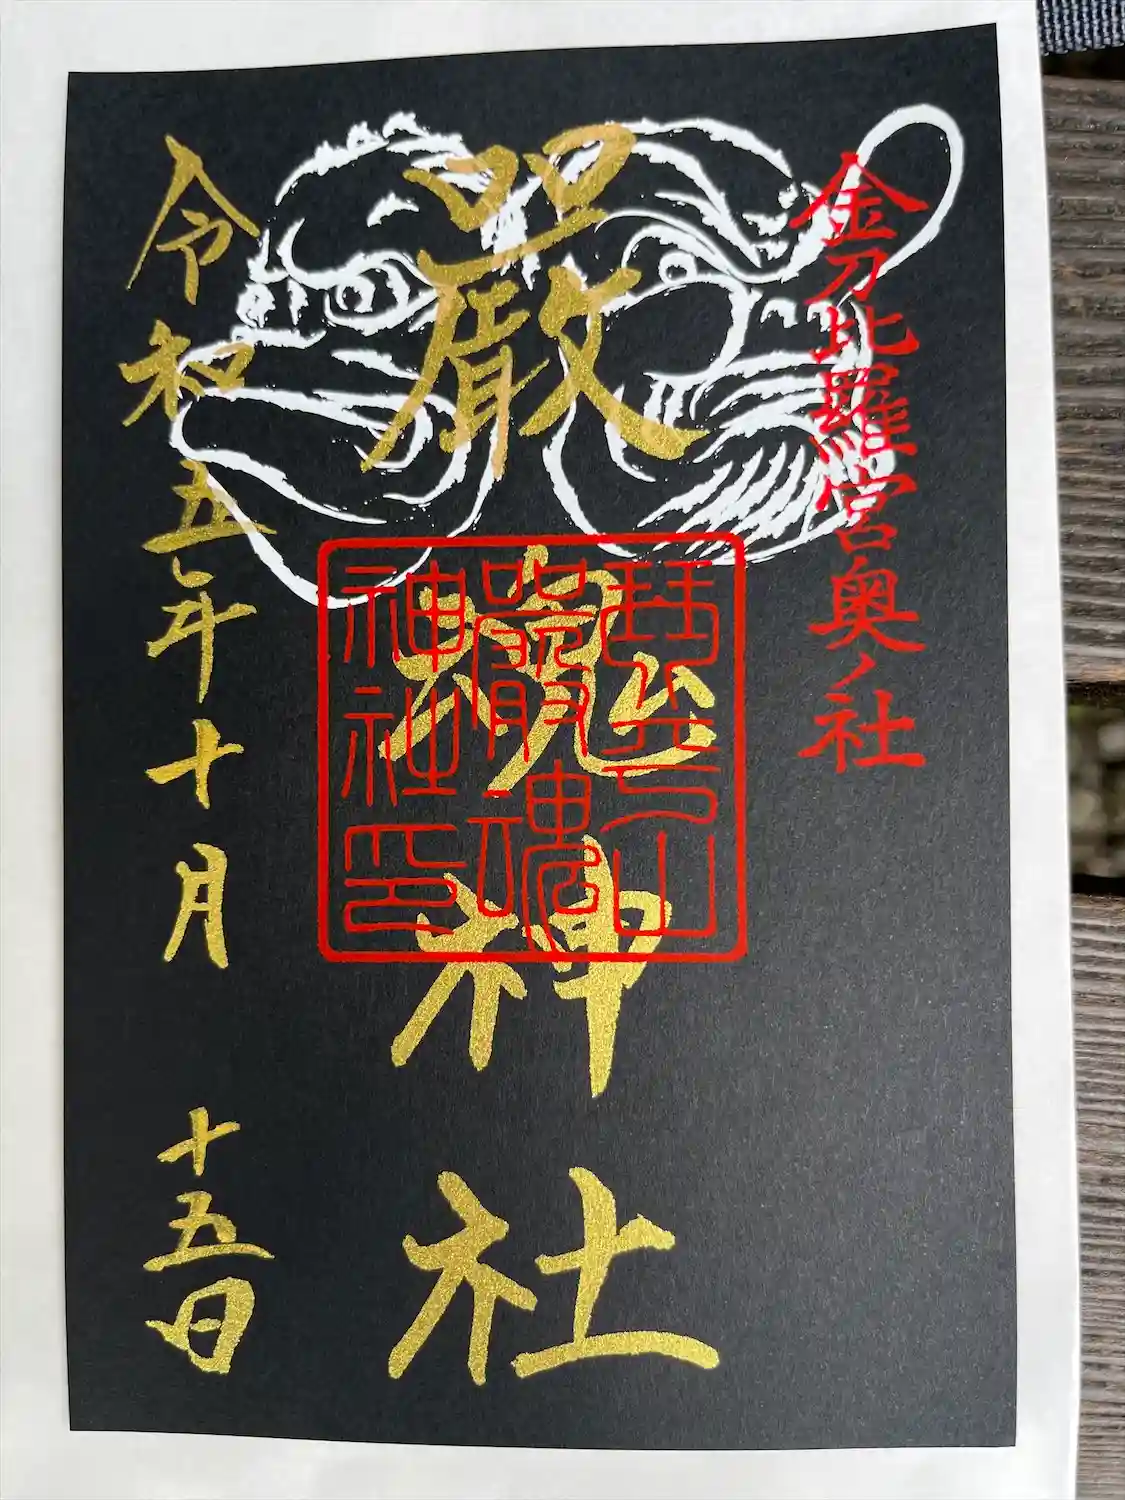 金刀比羅宮奥ノ社
嚴魂神社
琴平山
嚴魂
神社印
令和五年十月十五日